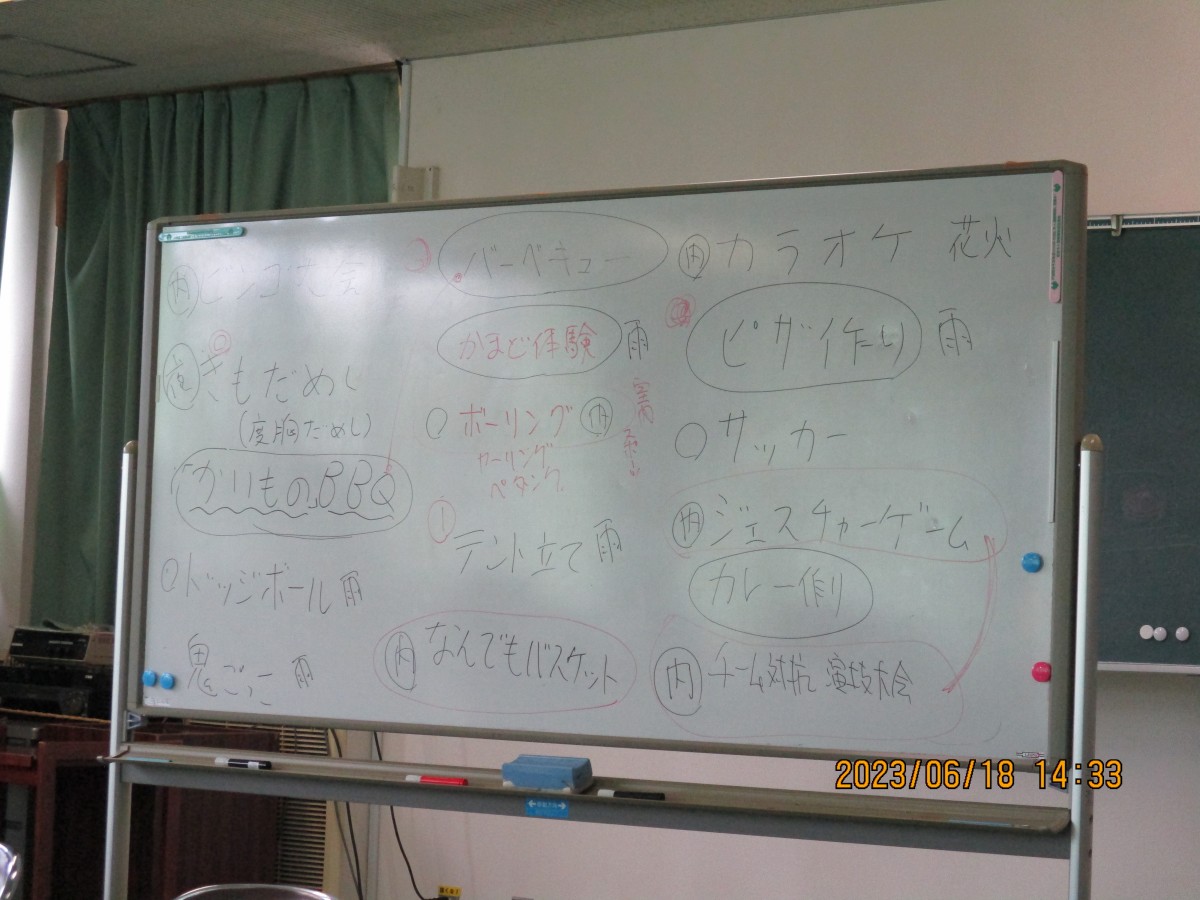 内 ビンゴ大会
きもだめし
(度胸だめし)
かりものBBQ
ドッジボール 雨
鬼ごっこ 雨
バーベキュー
かまど体験 雨
ボーリング 内
カーリング
ペタンク
テント立て 雨
内 なんでもバスケット
内 カラオケ 花火
ピザ作り 雨
サッカー
内 ジェスチャーゲーム
カレー作り
内 チーム対抗 演技大会
2023/06/18 14:33